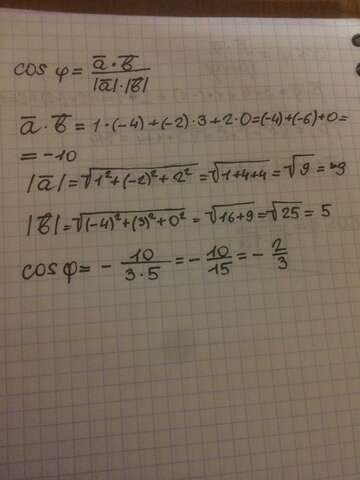 cos φ = a̅ · b̅ / |a̅| · |b̅|
a̅ · b̅ = 1 · (-4) + (-2) · 3 + 2 · 0 = (-4) + (-6) + 0 =
= -10
|a̅| = √(1² + (-2)² + 2²) = √(1+4+4) = √9 = 3
|b̅| = √((-4)² + (3)² + 0²) = √(16+9) = √25 = 5
cos φ = - 10 / 3 · 5 = - 10 / 15 = - 2 / 3